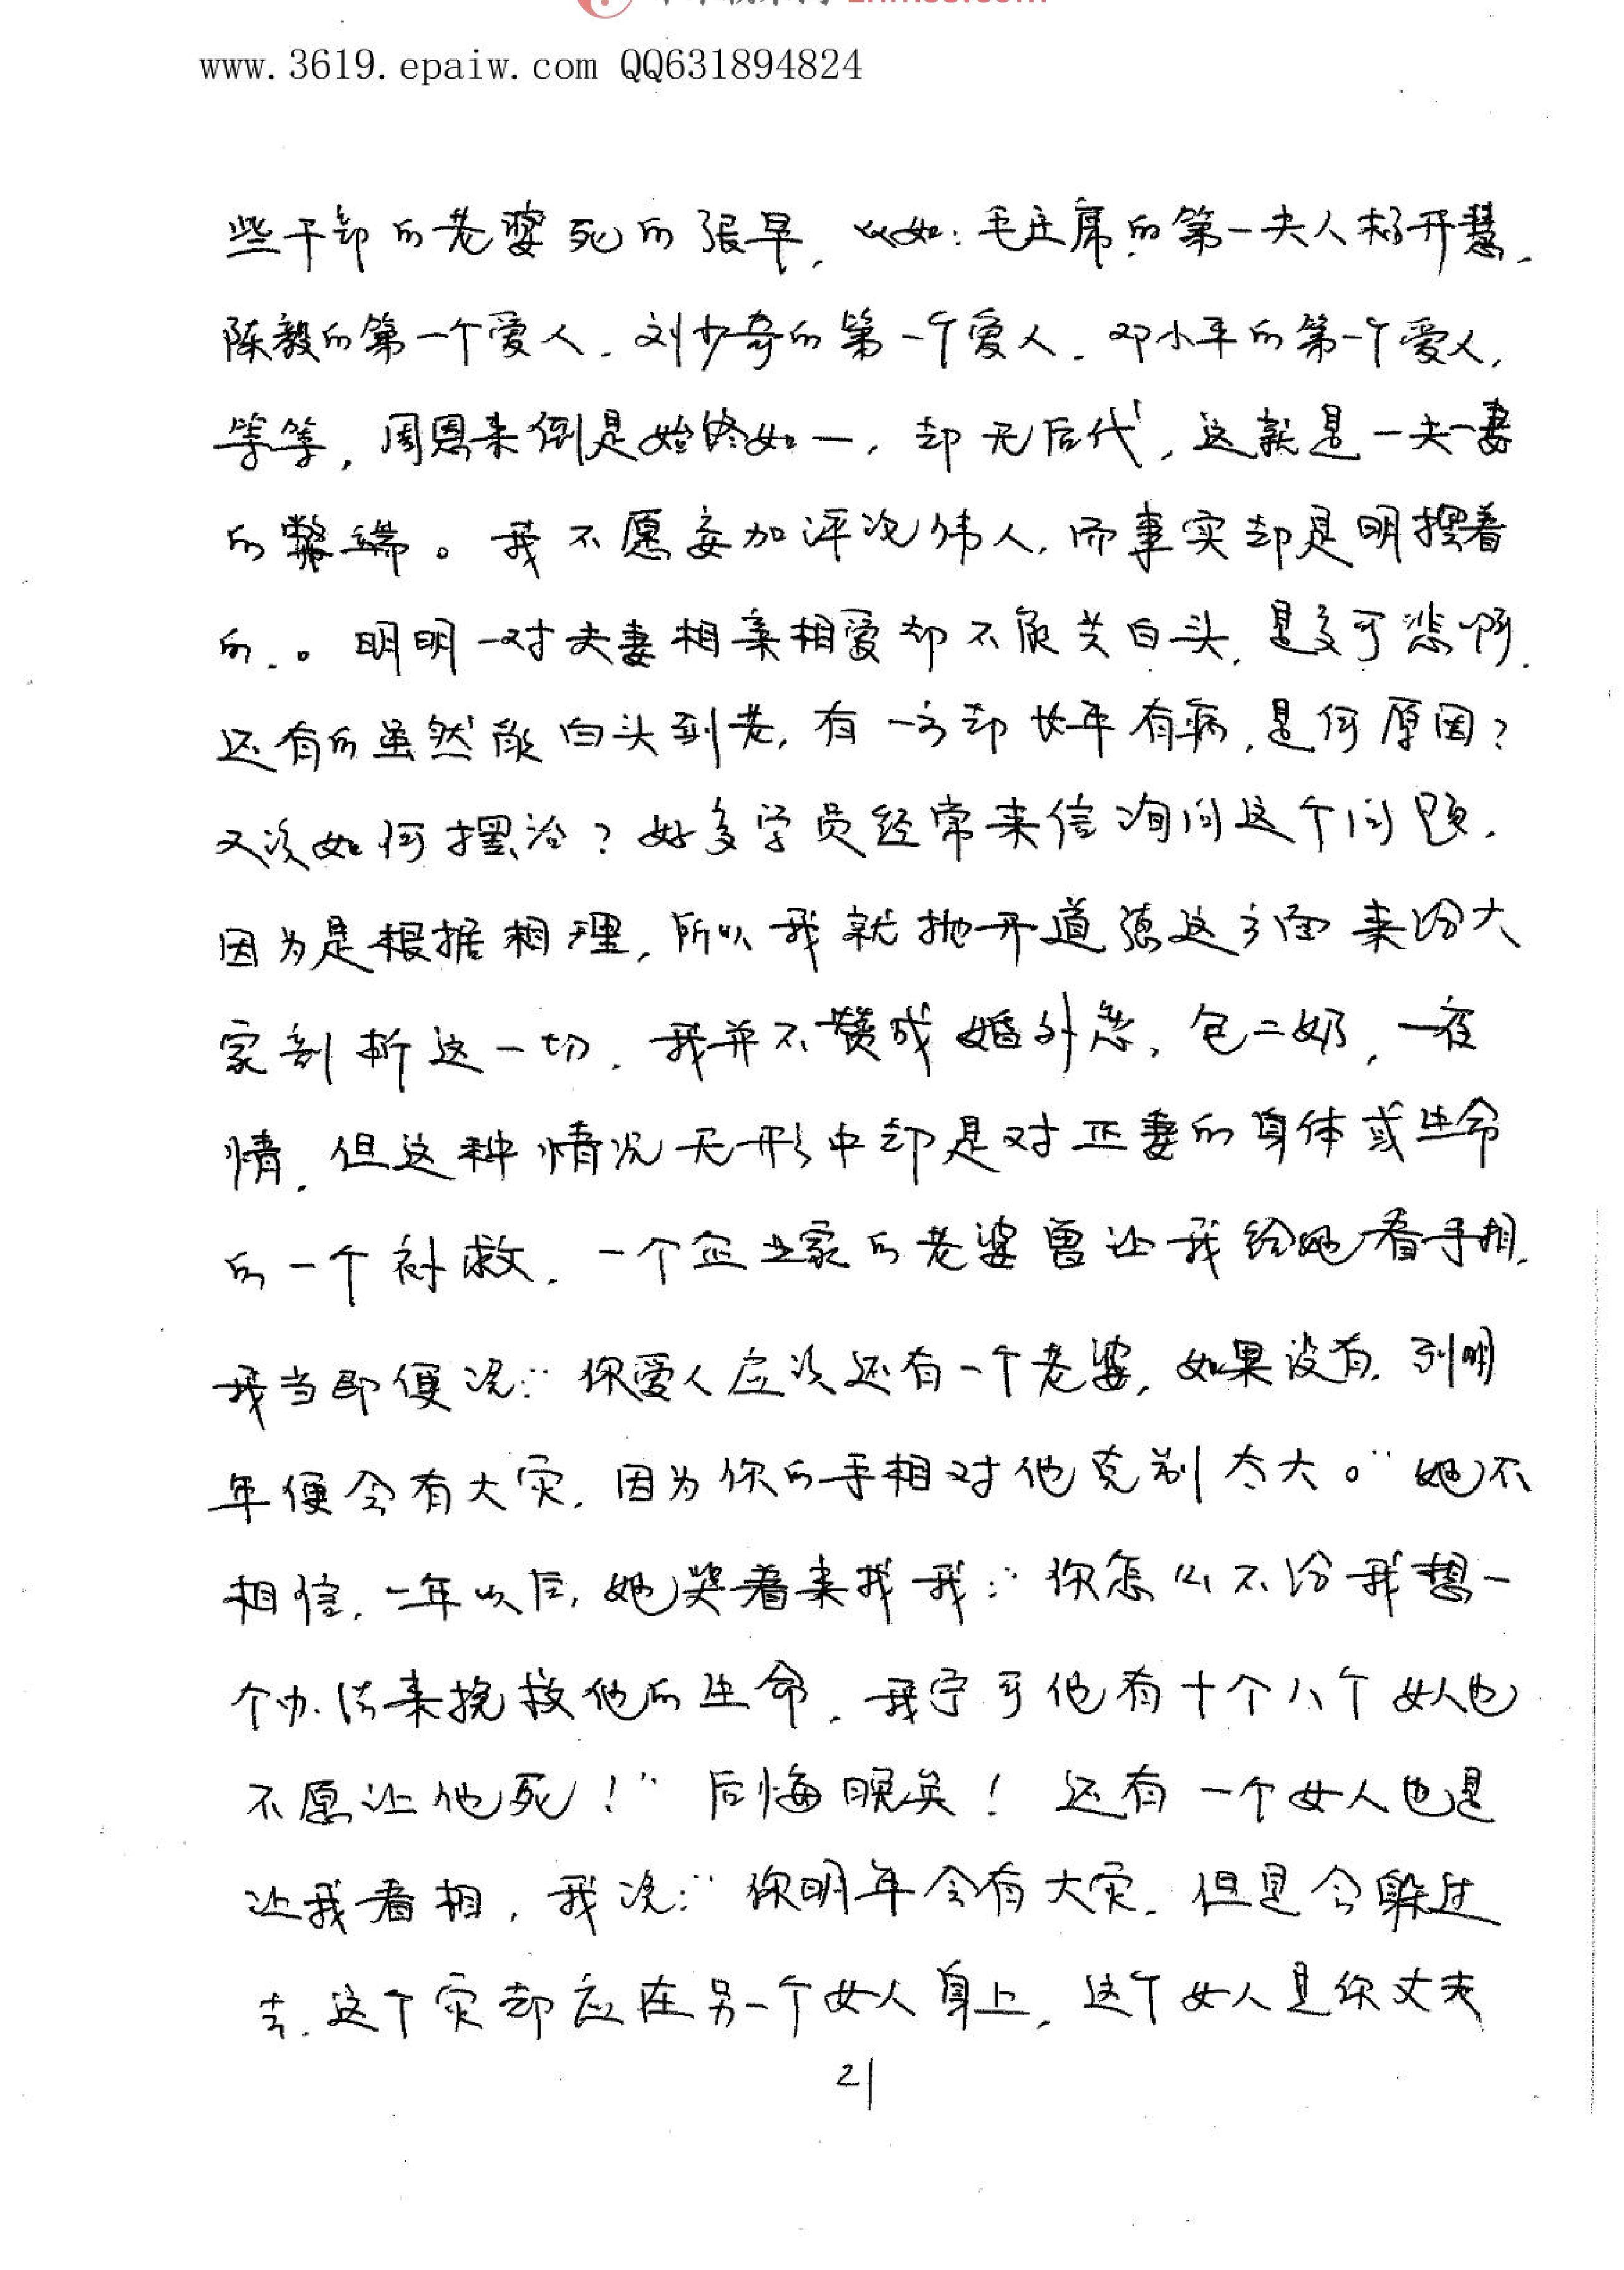 www.3619.epaiw.com QQ631894824
些干部的老婆死的很早，比如：毛主席的第一夫人杨开慧，
陈毅的第一个爱人，刘少奇的第一个爱人，邓小平的第一个爱人，
等等，周恩来倒是始终如一，却无后代，这就是一夫一妻
的弊端。我不愿妄加评说伟人，而事实却是明摆着
的。明明一对夫妻相亲相爱却不能共白头，是多可悲啊，
还有的虽然能白头到老，有一方却长年有病，是何原因？
又该如何摆治？好多学员经常来信询问这个问题，
因为是根据相理，所以我就抛开道德这方面来给大
家剖析这一切，我并不赞成婚外恋，包二奶，一夜
情，但这种情况无形中却是对正妻的身体或生命
的一个补救，一个企业家的老婆曾让我给她看手相，
我当即便说：“你爱人应该还有一个老婆，如果没有，到明
年便会有大灾，因为你的手相对他克制太大。”她不
相信，一年以后，她哭着来找我：“你怎么不给我想一
个办法来挽救他的生命，我宁可他有十个八个女人也
不愿让他死！”后悔晚矣！还有一个女人也是
让我看相，我说：“你明年会有大灾，但是会躲过
去，这个灾却应在另一个女人身上，这个女人是你丈夫
21